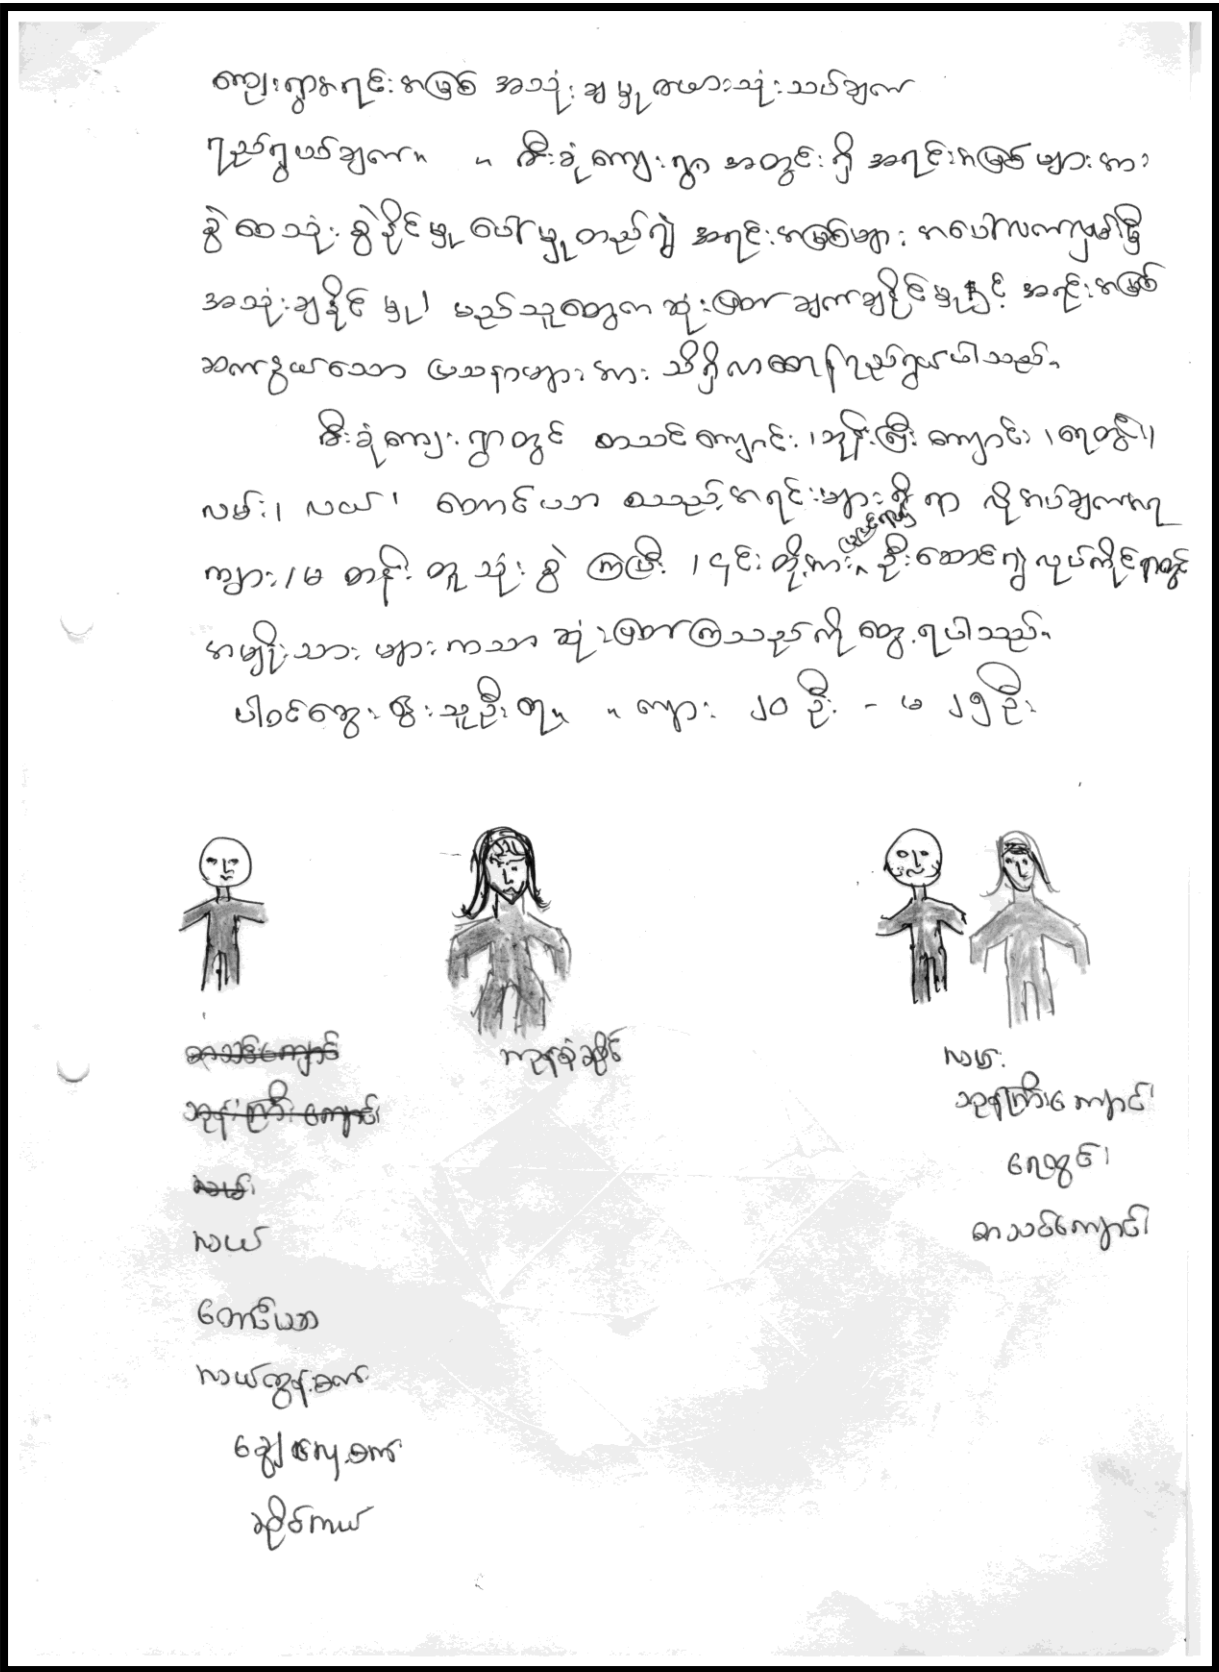 ကျေးရွာအရင်းအမြစ် အသုံးချမှု စားသုံးသပ်ချက်
ရည်ရွယ်ချက်။ ။ ဇီးခုံကျေးရွာ အတွင်းရှိ အရင်းအမြစ်များအား
စွဲစာသုံးစွဲနိုင်မှု ပေါ်မူတည်၍ အရင်းအမြစ်များ အပေါ်
အသုံးချနိုင်မှု၊ မည်သူတွေက ဆုံးဖြတ်ချက်ချနိုင်မှုနှင့် အရင်းအမြစ်
ဆက်နွယ်သော ပြသနာများအား သိရှိလာစေရန် ရည်ရွယ်ပါသည်။
ဇီးခုံကျေးရွာတွင် စာသင်ကျောင်း၊ ဘုန်းကြီးကျောင်း၊ ရေတွင်း၊
လမ်း၊ လယ်၊ တောင်ယာ စသည့်အရင်းများရှိရာ လိုအပ်ချက်အရ
ကျား/မ တန်းတူသုံးစွဲကြပြီး၊ ၎င်းတို့အား ပြုပြင်ရာ၌ ဦးဆောင်၍လုပ်ကိုင်ရာတွင်
အမျိုးသားများကသာ ဆုံးဖြတ်ကြသည်ကို တွေ့ရပါသည်။
ပါဝင်ဆွေးနွေးသူဦးရေ။ ။ ကျား ၂၀ ဦး - မ ၂၅ ဦး
စာသင်ကျောင်း
ကုန်စုံဆိုင်
လမ်း
ဘုန်းကြီးကျောင်း
ဘုန်းကြီးကျောင်း
လမ်း
ရေတွင်း
လယ်
စာသင်ကျောင်း
တောင်ယာ
လယ်ထွန်စက်
ချွေလှေ့စက်
ဆိုင်ကယ်